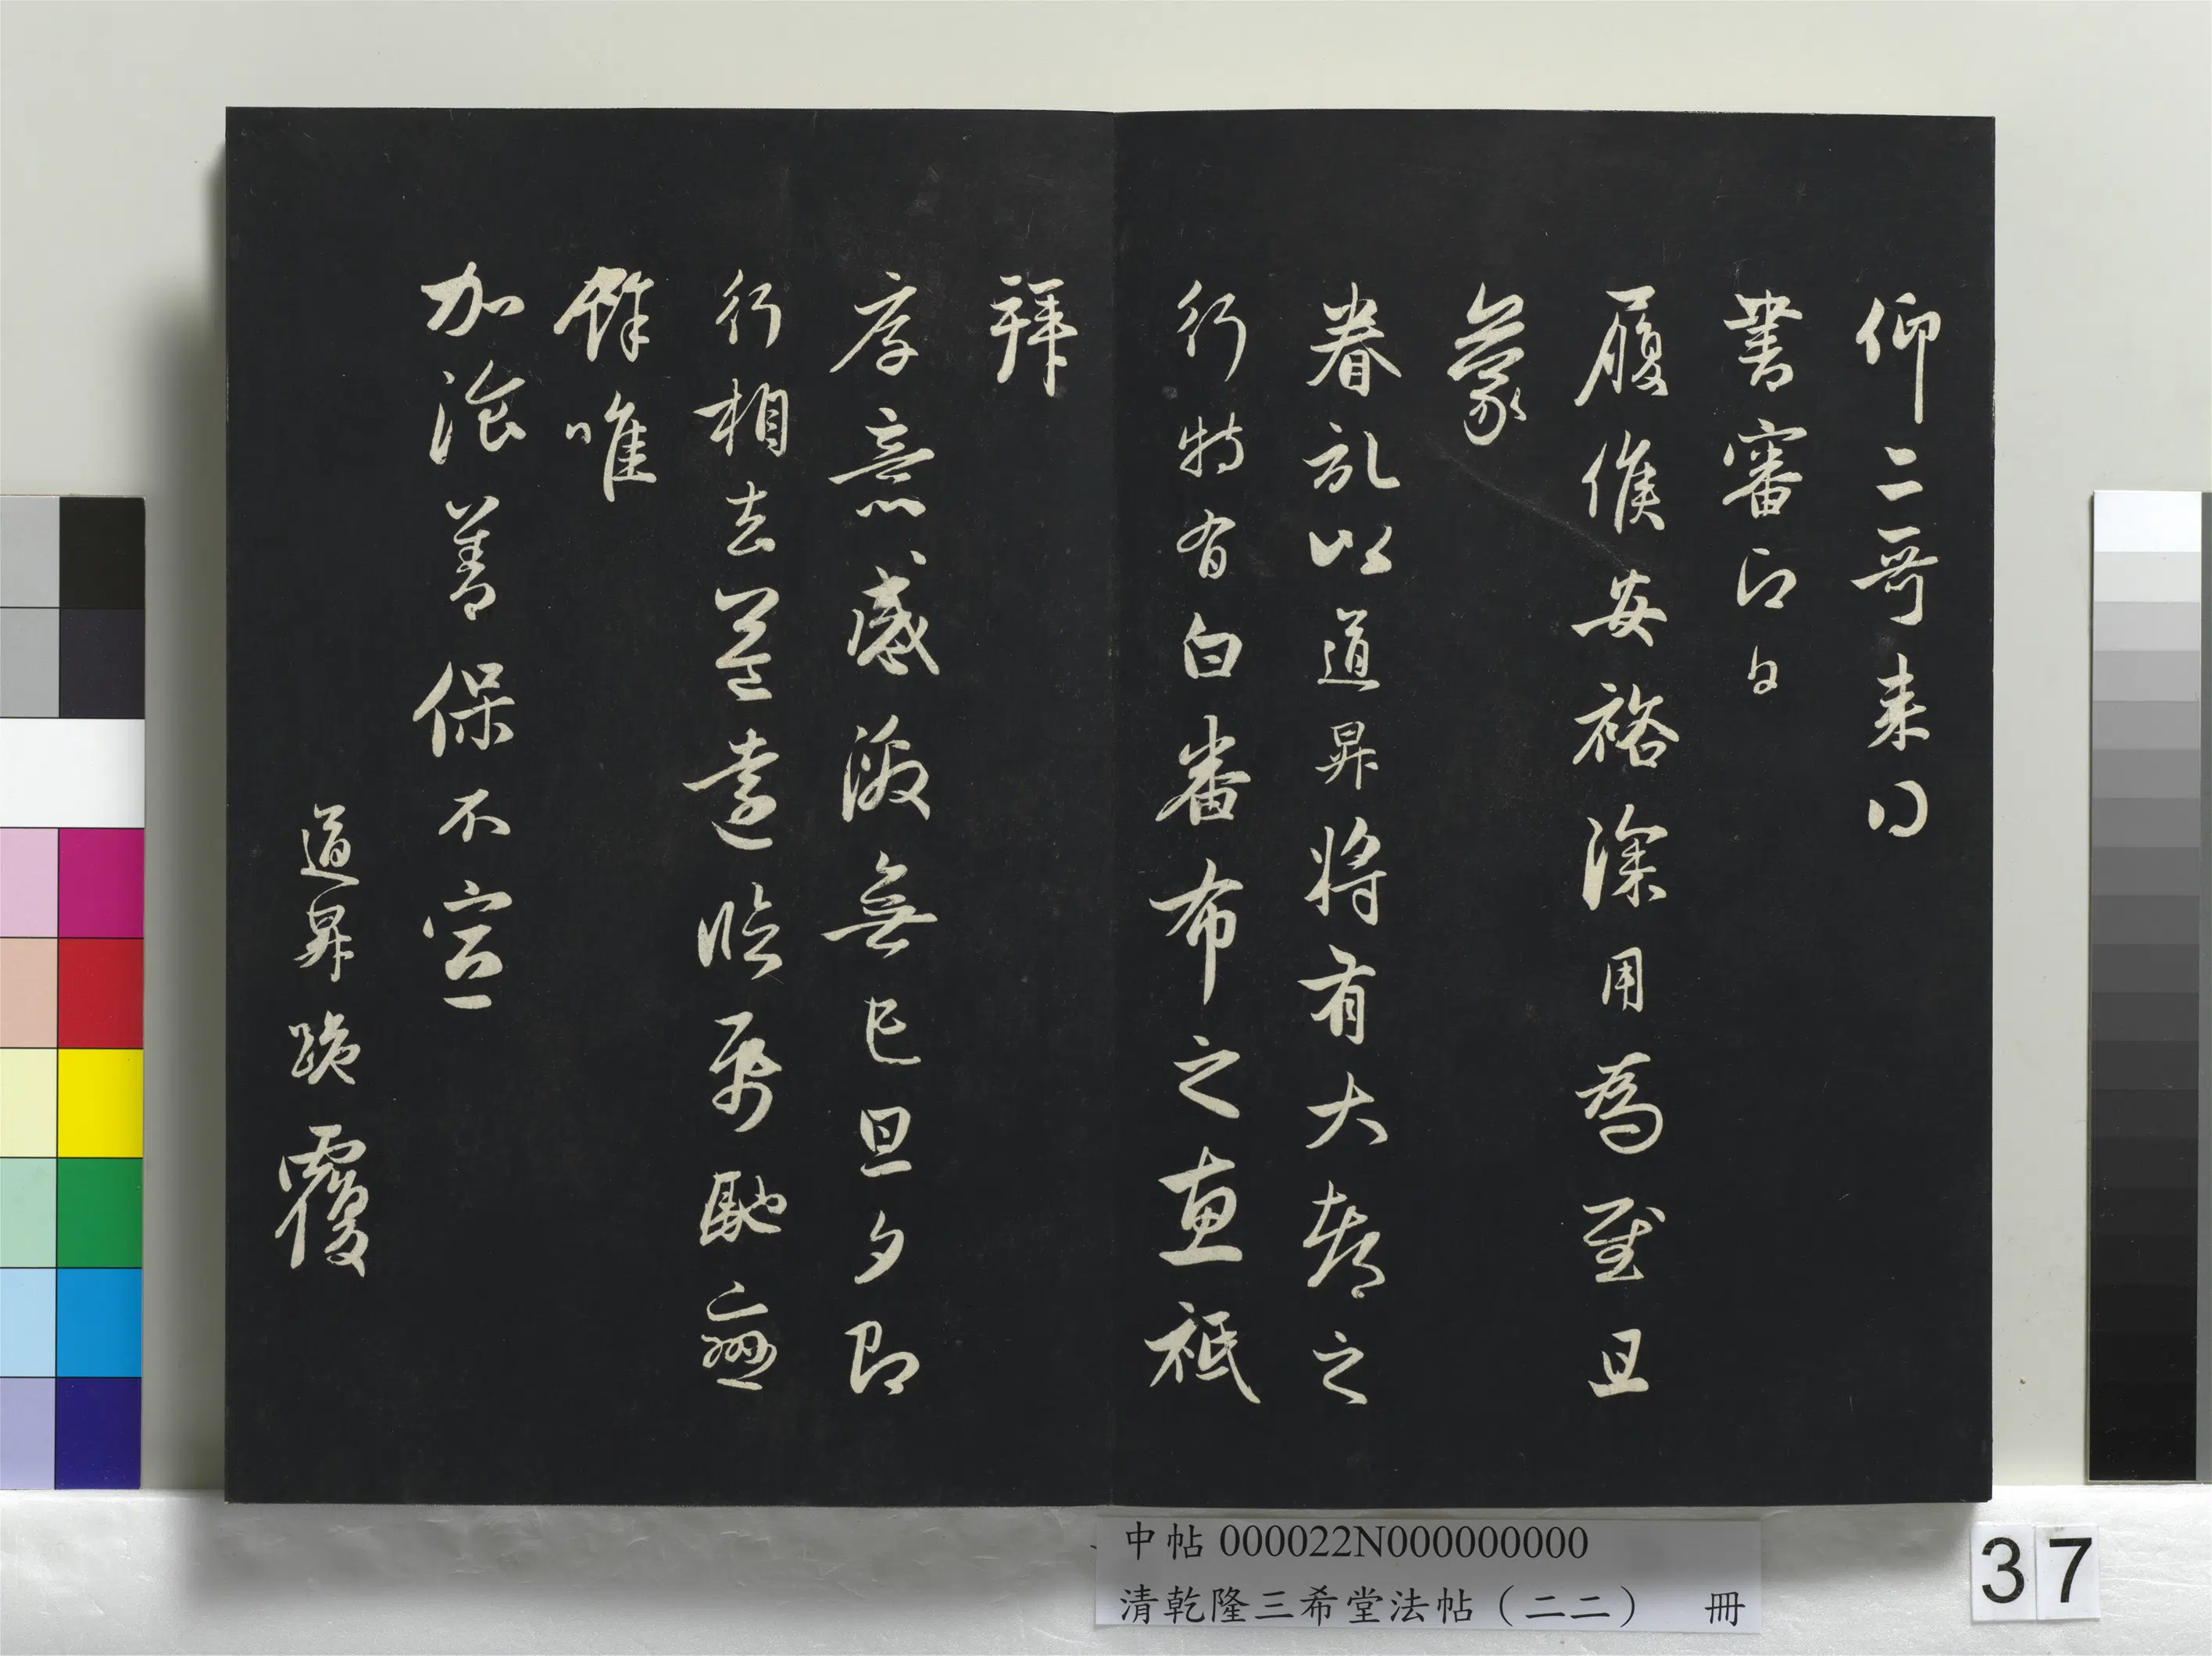 仰二哥来得
書審即日
履候安裕深用為慰且
蒙
眷以道昇將有大都之
行特有白番布之惠祗
拜
厚意感激無已旦夕即
行相去益遠臨馳戀
餘唯
加飡善保不宣
道昇跪覆
中帖 000022N000000000
清乾隆三希堂法帖（二二） 冊
37